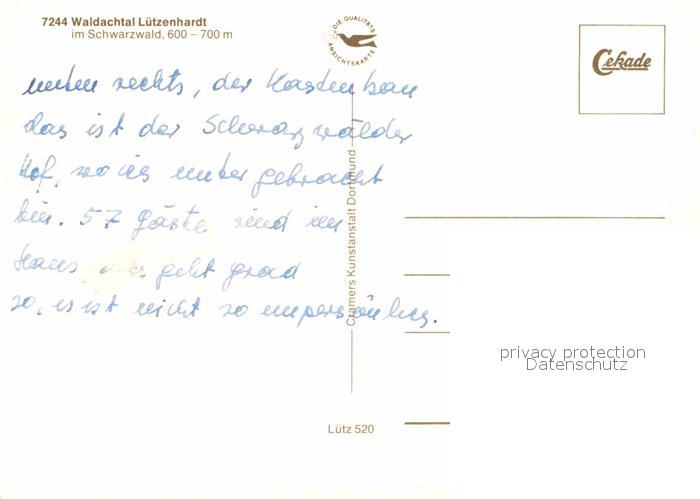 7244 Waldachtal Lützenhardt
im Schwarzwald, 600 – 700 m
DIE QUALITÄTS
ANSICHTSKARTE
Cekade
unten rechts, der Kastenbau
das ist der Schwarzwälder
Hof, wo ich unter gebracht
bin. 57 Gäste sind im
Haus, geht grad
so, es ist nicht so unpersönlich.
Cramers Kunstanstalt Dortmund
privacy protection
Datenschutz
Lütz 520